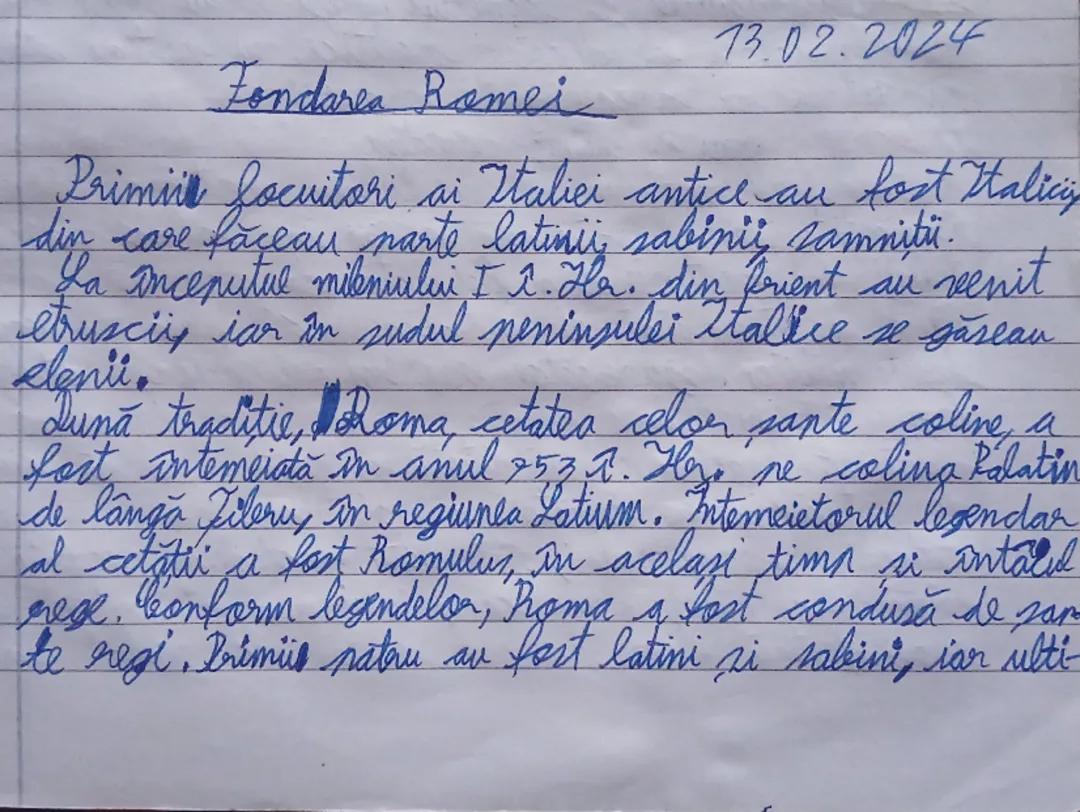 13.02.2024
Fondarea Romei
Primii locuitori ai Italiei antice au fost Italicii,
din care făceau parte latinii, sabinii, samniții.
La începutul mileniului I î. Hr. din Orient au venit
etruscii, iar în sudul peninsulei Italice se găseau
elenii.
După tradiție, Roma, cetatea celor șapte coline, a
fost întemeiată în anul 753 î. Hr. pe colina Palatin
de lângă Tibru, în regiunea Latium. Întemeietorul legendar
al cetății a fost Romulus, în același timp și întâiul
rege. Conform legendelor, Roma a fost condusă de șap-
te regi. Primii patru au fost latini și sabini, iar ulti-